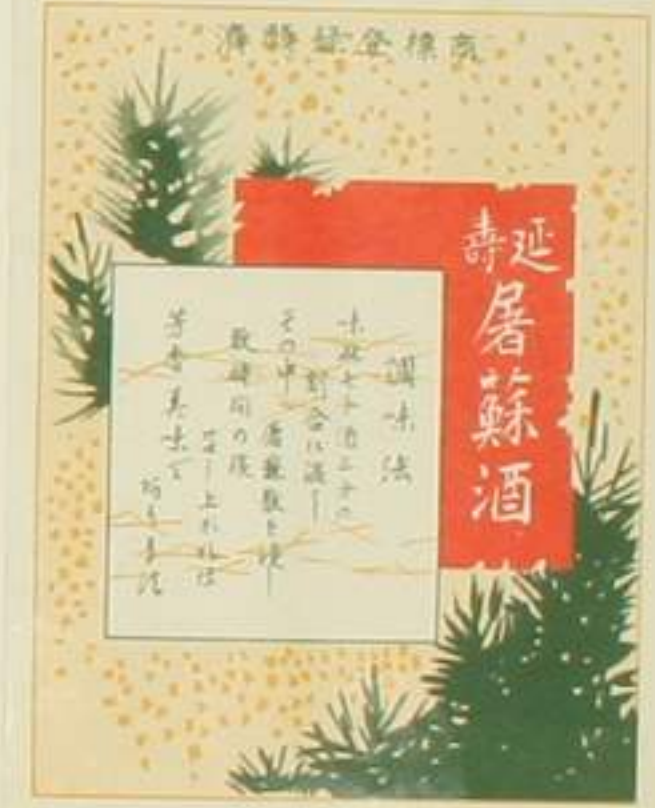 商標登録
延壽
屠蘇酒
調味法
味淋七分酒三分の
割合に混し
その中へ屠蘇散を浸し
数時間の後
召し上れは
芳香美味